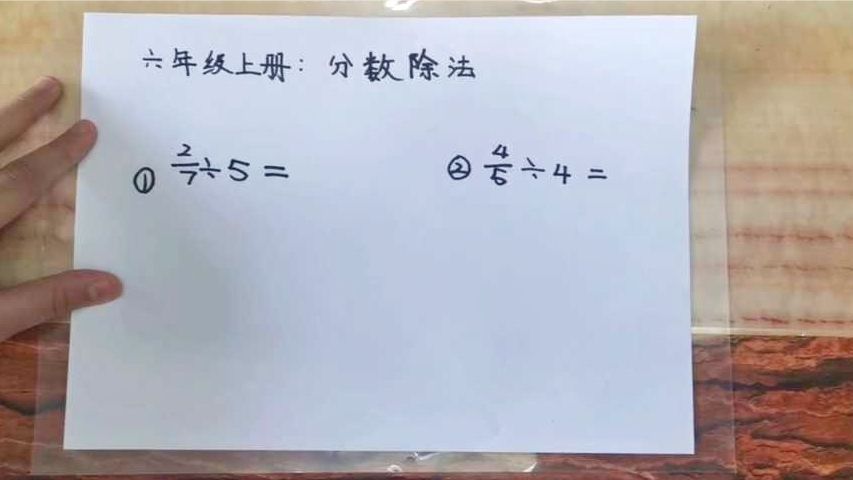 六年级上册：分数除法
① 2/7÷5= ② 4/5÷4=